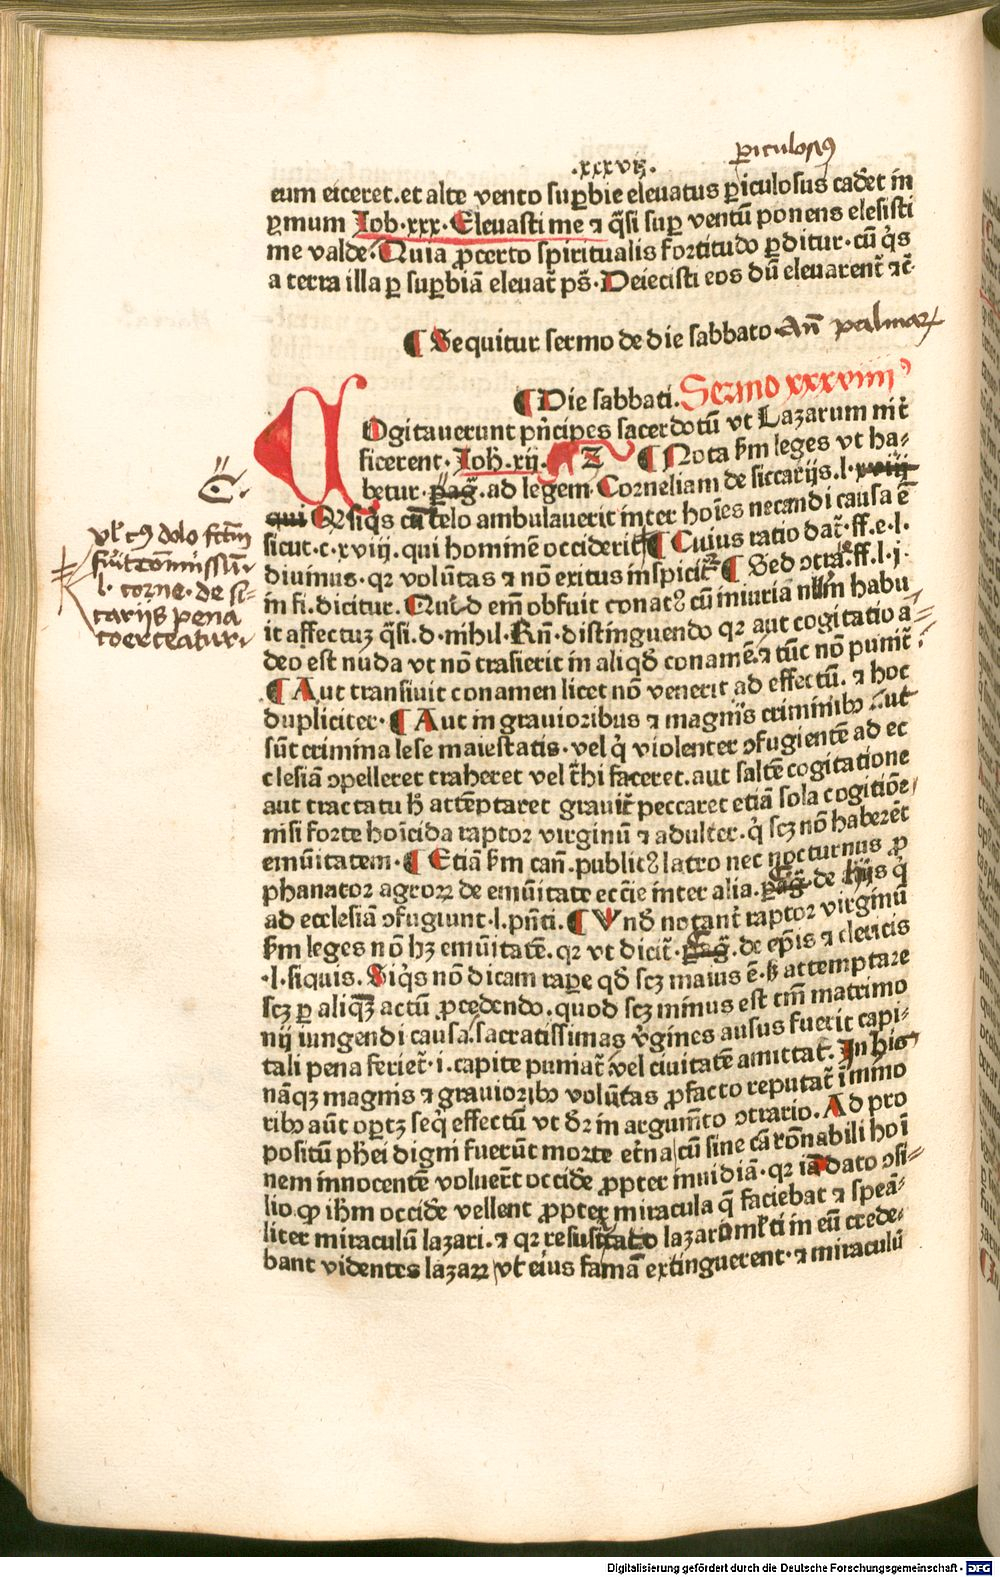 .xxxvij.
periculosus
eum eiceret. et alte vento suꝑbie eleuatus ꝑiculosus cadet in
ꝓmum Iob. xxx. Eleuasti me ⁊ q̄si suꝑ ventū ponens elesisti
me valde. Quia ꝓcerto spiritualis fortitudo ꝑditur. cū q̇s
a terra illa ꝑ suꝑbiā eleuat̄ ps̄. Deiecisti eos dū eleuarent̄ ⁊c̄.
¶ Sequitur sermo de die sabbato. An̄ palmaꝝ
¶ Die sabbati. Sermo xxxviiij
Ogitauerunt pn̄cipes sacerdotū vt Lazarum int̄
ficerent. Ioh. xij. ¶ Nota ẜm leges vt ha⸗
betur. ad legem Corneliam de siccarijs. l.
qui Qr siq̇s cū telo ambulauerit inter hoīes necandi causa ē
sicut. c. xviij. qui hominē occiderit ¶ Cuius ratio dat̄. ff. e. l.
diuinus. qr volūtas ⁊ nō exitus inspicit̄ ¶ Sed ꝯtra. ff. l. j.
in fi. dicitur. Quid em̄ obfuit conatꝰ cū iniuriā nllm̄ habu
it affectuz q̄si. d. nihil. Rn̄. distinguendo qr aut cogitatio a⸗
deo est nuda vt nō trasierit in aliqd̄ conamē. ⁊ tūc nō punit̄.
¶ Aut transiuit conamen licet nō venerit ad effectū. ⁊ hoc
dupliciter. ¶ Aut in grauioribus ⁊ magnis criminibꝰ vt
sūt crimina lese maiestatis. vel q̇ violenter ꝯfugientē ad ec
clesiā ꝯpelleret traheret vel t̄hi faceret. aut saltē cogitatione
aut tractatu h̄ attēptaret grauit̄ peccaret etiā sola cogitiōe
nisi forte hoīcida raptor virginū ⁊ adulter. q̇ scz nō haberēt
emūitatem. ¶ Etiā ẜm can̄. publicꝰ latro nec nocturnus ꝓ
phanator agroꝝ de emūitate eccīe inter alia. de hijs q̇
ad ecclesiā ꝯfugiunt. l. pn̄ti. ¶ Vnd̄ notant̄ raptor virginū
ẜm leges nō hꝫ emūitatē. qr vt dicit̄. de ep̄is ⁊ clericis
.l. siquis. Siq̇s nō dicam raꝑe qd̄ scz maius ē. sꝫ attemptare
scz ꝑ aliqꝫ actū ꝓcedendo. quod scz minus est tm̄ matrimo
nij iungendi causa. sacratissimas v̄gines ausus fuerit capi⸗
tali pena feriet̄. i. capite puniat̄ vel ciuitatē amittat̄. In his
nāqꝫ magnis ⁊ grauioribꝰ volūtas ꝓ facto reputat̄ ī mino
ribꝰ aūt oꝑtꝫ seq̇ effectū vt dr̄ in argumēto ꝯtrario. Ad pro
positū ph̄ei digni fuerūt morte et̄na cū sine cā rōnabili hoī
nem innocentē voluer̄t occidē ꝓpter inuidiā. qr iā dato ꝯsi⸗
lio. ꝙ ih̄m occidē vellent ꝓpter miracula q̄ faciebat ⁊ speā⸗
liter miraculū lazari. ⁊ qr resusitato lazaro ml̄ti in eū crede⸗
bant videntes lazaꝝ vt eius famā extinguerent. ⁊ miraculū
C.
vl' cꝰ dolo fctm̄
fu'it cōmissum
l. corne. de si⸗
cariis pena
coerceatur